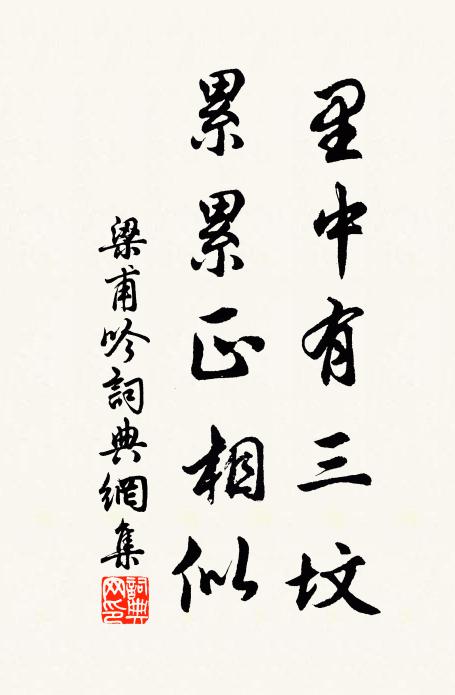 里中有三坟
累累正相似
梁甫吟詞典網集
詞典网印